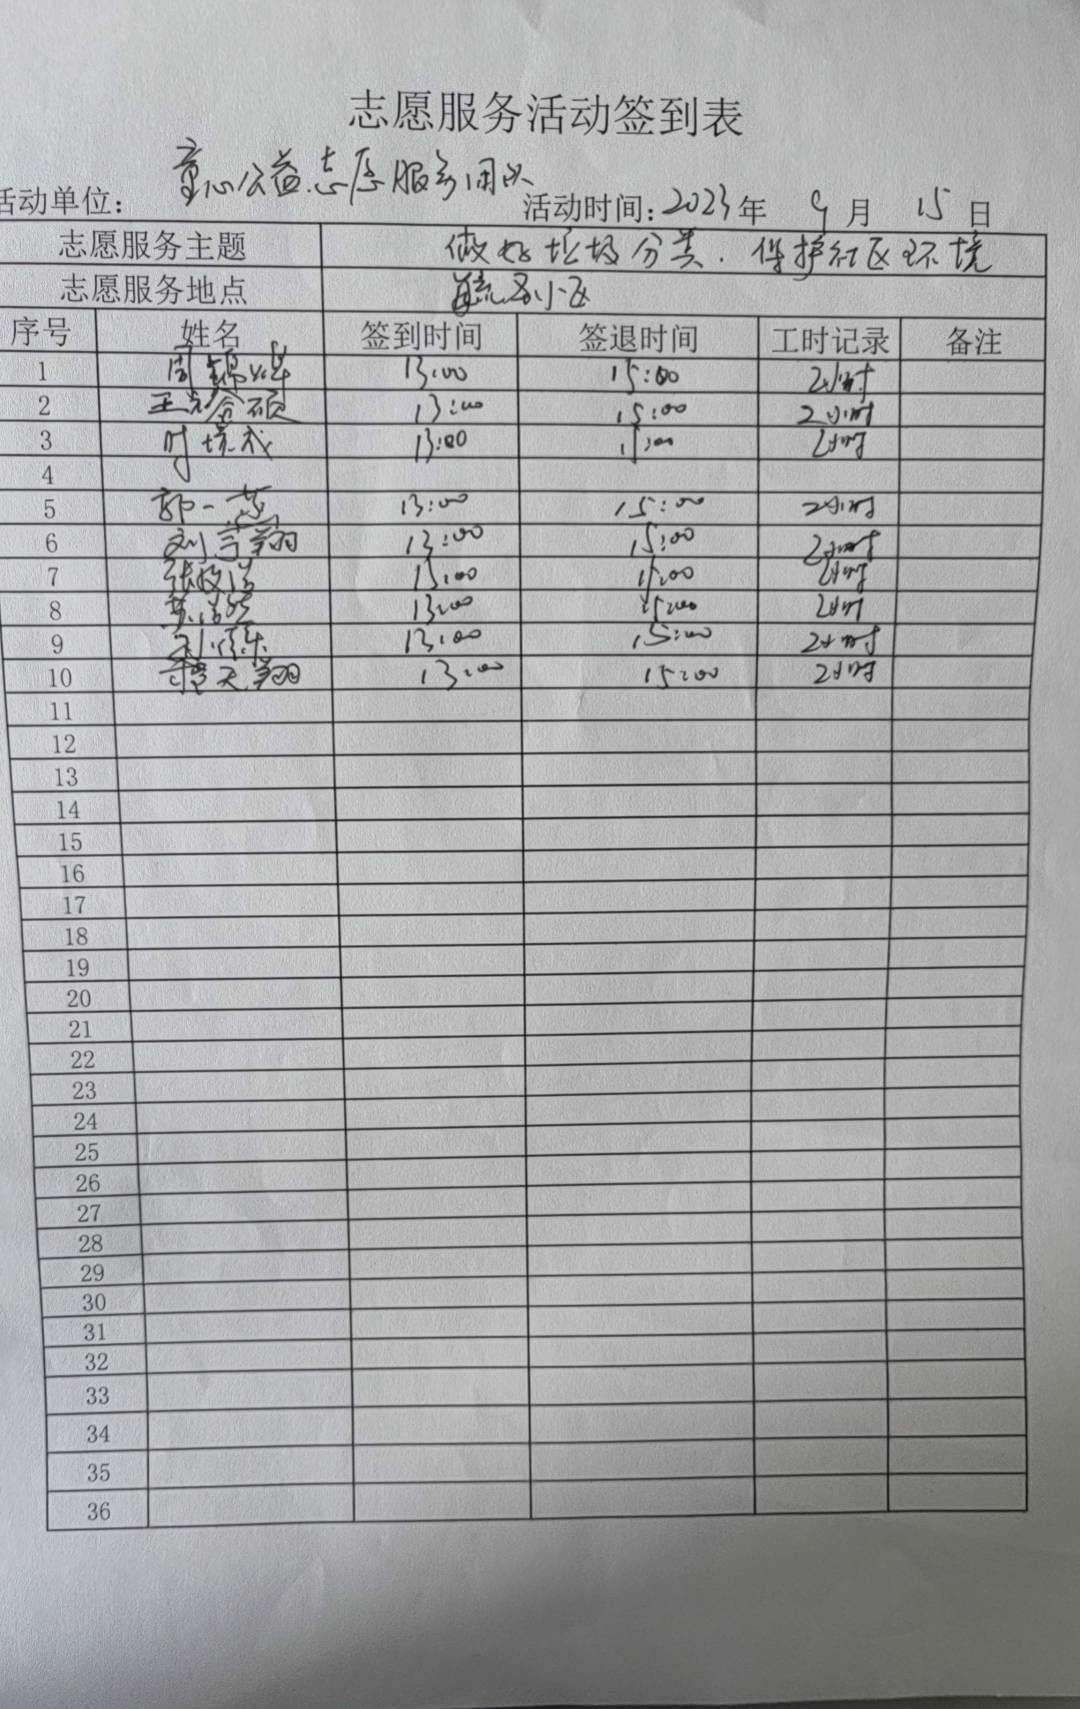 志愿服务活动签到表
童心公益志愿服务团队
活动单位: 活动时间:2023年 9月 15日
志愿服务主题 做好垃圾分类.保护社区环境
志愿服务地点 小区
序号 姓名 签到时间 签退时间 工时记录 备注
1 周 13:00 15:00 2小时
2 王 13:00 15:00 2小时
3 时 13:00 15:00 2小时
4
5 郭一 13:00 15:00 2小时
6 刘宇翔 13:00 15:00 2小时
7 张 13:00 15:00 2小时
8 13:00 15:00 2小时
9 13:00 15:00 2小时
10 天翔 13:00 15:00 2小时
11
12
13
14
15
16
17
18
19
20
21
22
23
24
25
26
27
28
29
30
31
32
33
34
35
36